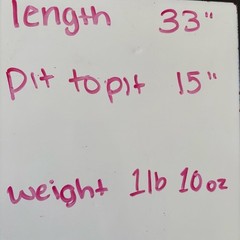 length 33"
Pit to pit 15"
weight 1lb 10oz